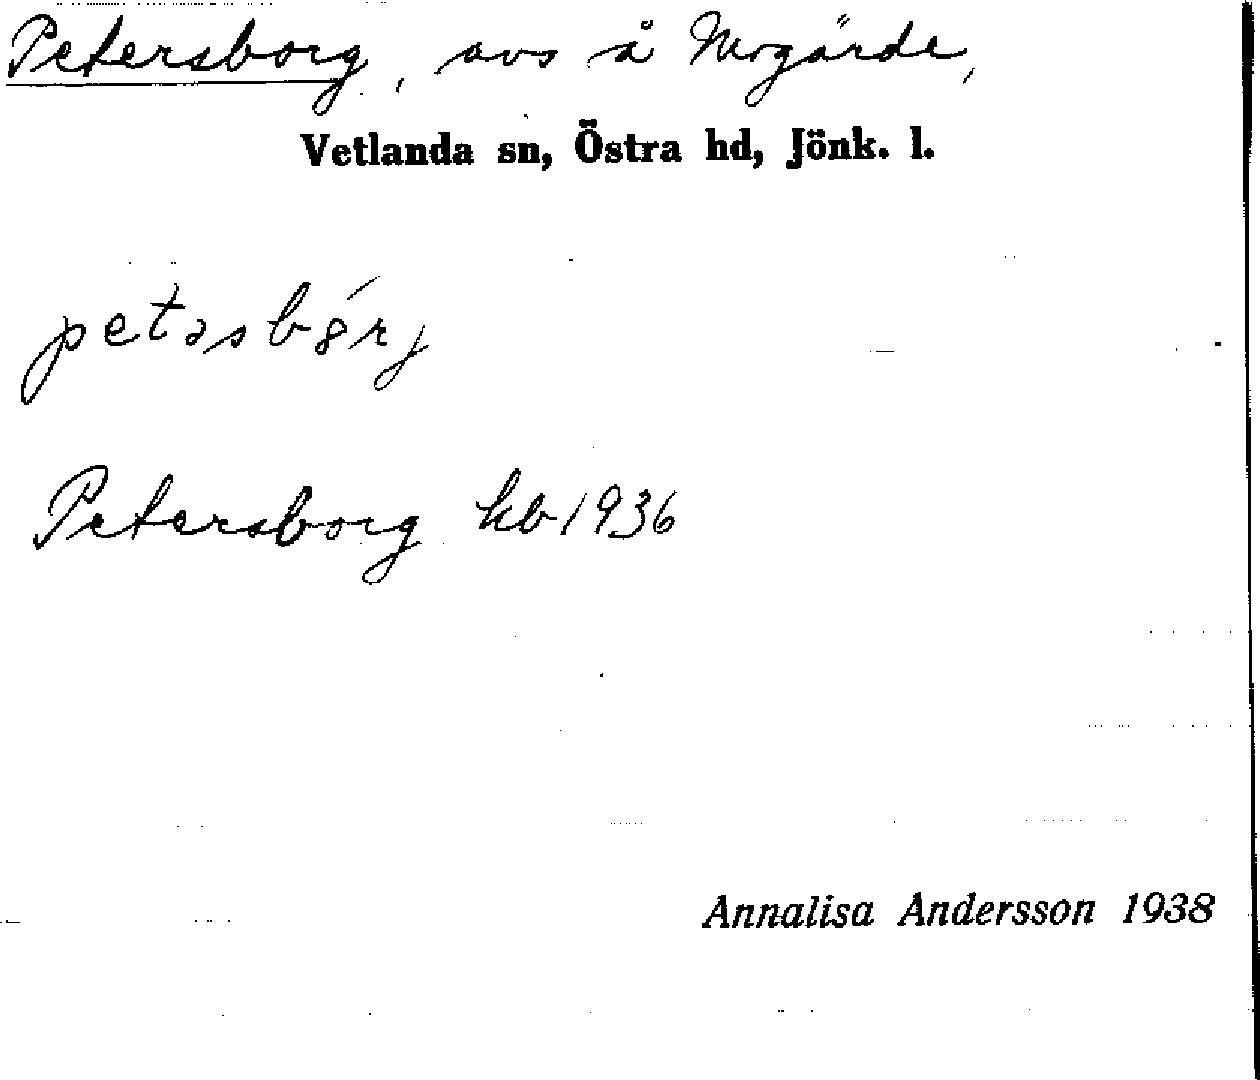 Petersborg, avs å Mogärde,
Vetlanda sn, Östra hd, Jönk. l.
petəsbǿrj
Petersborg kb 1936
Annalisa Andersson 1938